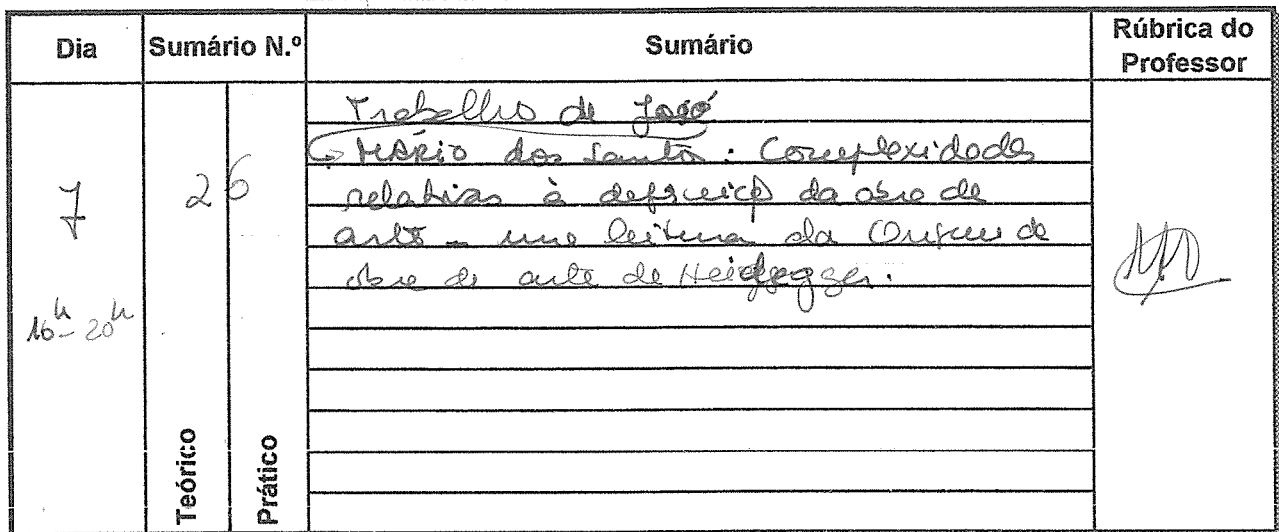 Dia Sumário N.º Sumário Rúbrica do Professor
7
16h - 20h
26
Teórico
Prático
Trabalho de José
Mário dos Santos: Complexidades
relativas à definição da obra de
arte - uma leitura da Origem da
obra de arte de Heidegger.